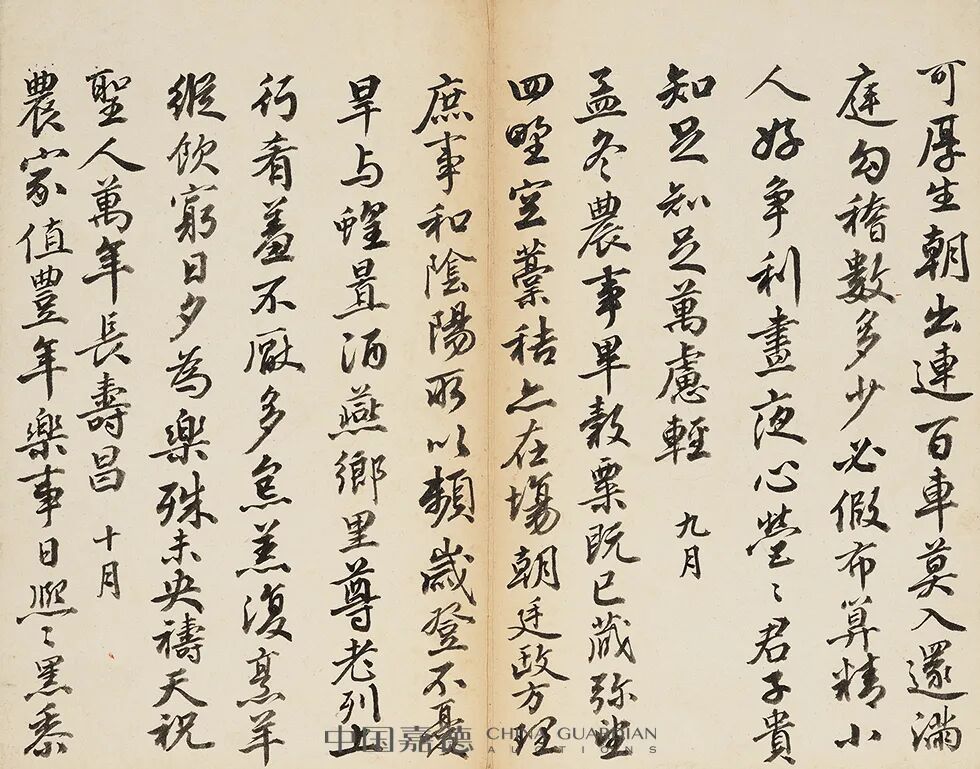 可厚生朝出連百車莫入還滿
庭勾稽數多少必假布算精小
人好爭利晝夜心營〻君子貴
知足知足萬慮輕 九月
孟冬農事畢穀粟既已藏弥望
四野空藁秸亦在場朝廷政方理
庶事和陰陽所以頻歲登不憂
旱与蝗置酒燕鄉里尊老列上
行肴羞不厭多炰羔復烹羊
縱飲窮日夕為樂殊未央禱天祝
聖人萬年長壽昌 十月
農家值豐年樂事日熙〻黑黍
中国嘉德 CHINA GUARDIAN
AUCTIONS